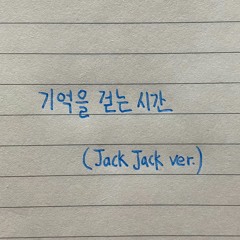 기억을 걷는 시간
(Jack Jack ver.)